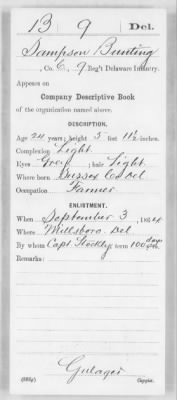 B 9 Del.
Sampson Bunting
, Co. C, 9 Reg't Delaware Infantry.
Appears on
Company Descriptive Book
of the organization named above.
DESCRIPTION.
Age 24 years; height 5 feet 11½ inches.
Complexion Light
Eyes Grey; hair Light
Where born Sussex Co Del
Occupation Farmer
ENLISTMENT.
When September 3, 1864
Where Millsboro Del
By whom Capt Stockley; term 100 days
Remarks:
Gulager
Copyist.